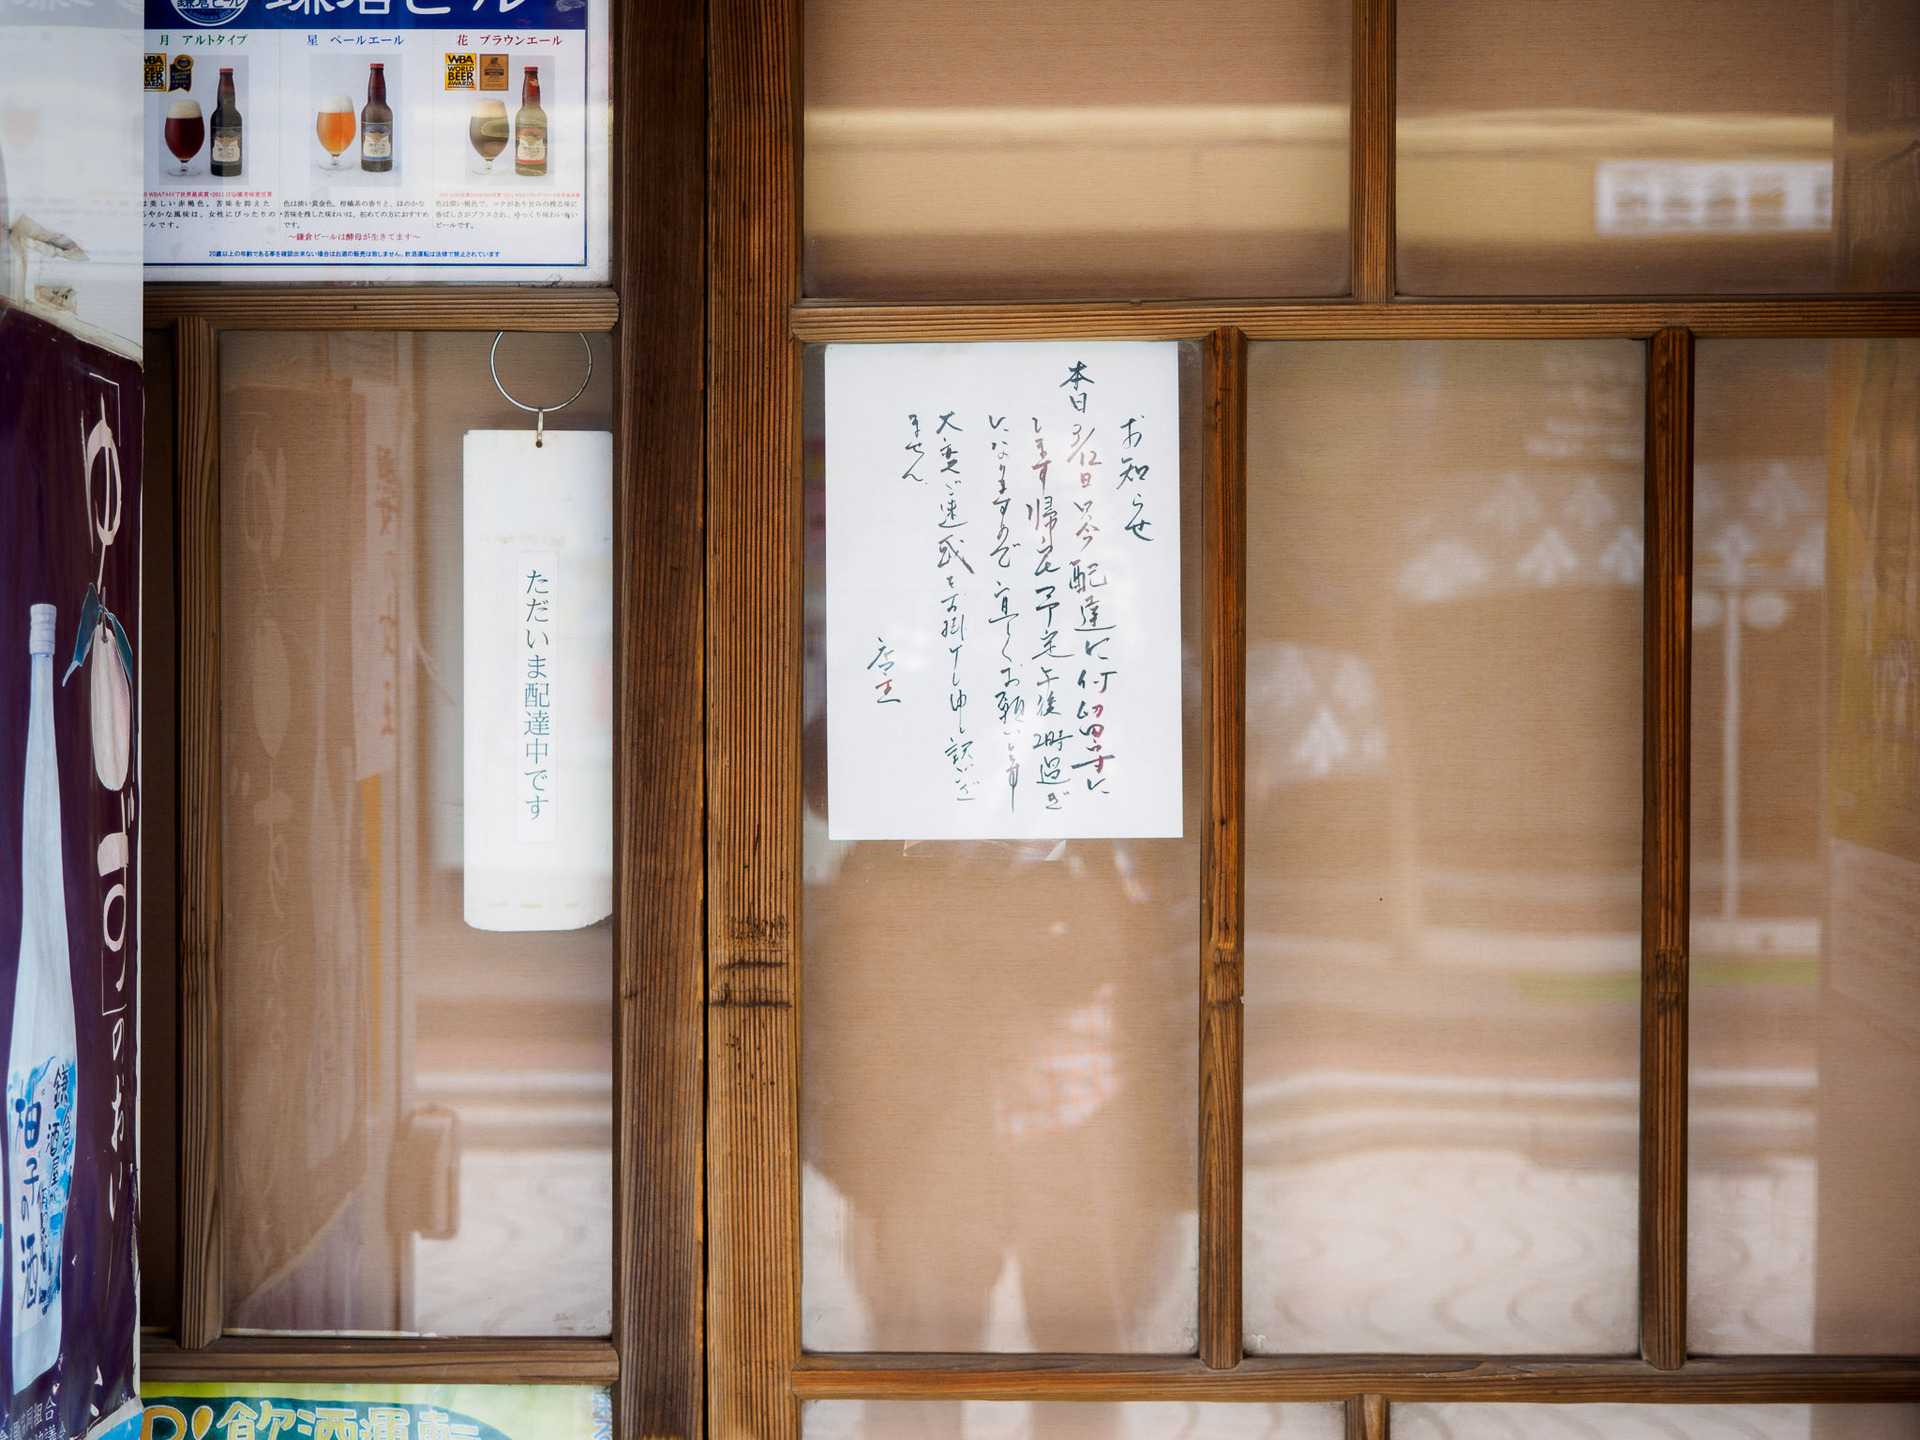 鎌倉ビール
月 アルトタイプ
星 ペールエール
花 ブラウンエール
WBA
WORLD
BEER
AWARDS
WBA
WORLD
BEER
AWARDS
は美しい赤褐色。苦味を抑えた
やかな風味は、女性にぴったりの
ールです。
色は淡い黄金色。柑橘系の香りと、ほのかな
苦味を残した味わいは、初めての方におすすめ
です。
色は深い褐色で、コクがあり甘みの残る味に
香ばしさがプラスされ、ゆっくり味わいたい
ビールです。
〜鎌倉ビールは酵母が生きてます〜
20歳以上の年齢である事を確認出来ない場合はお酒の販売は致しません。飲酒運転は法律で禁止されています
ただいま配達中です
お知らせ
本日3/12日只今配達に付留守に
します帰宅予定午後2時過ぎ
になりますので宜しくお願いします
大変ご迷惑をお掛けし申し訳ござ
ません
店主
のおいし
鎌倉
酒屋が
柚子の酒
飲酒運転